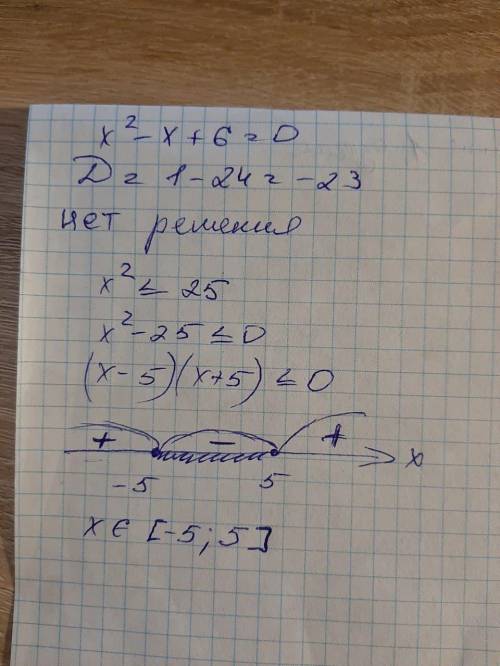 x² - x + 6 = 0
D = 1 - 24 = -23
нет решения
x² ≤ 25
x² - 25 ≤ 0
(x - 5)(x + 5) ≤ 0
+ - +
-5 5 x
x ∈ [-5; 5]